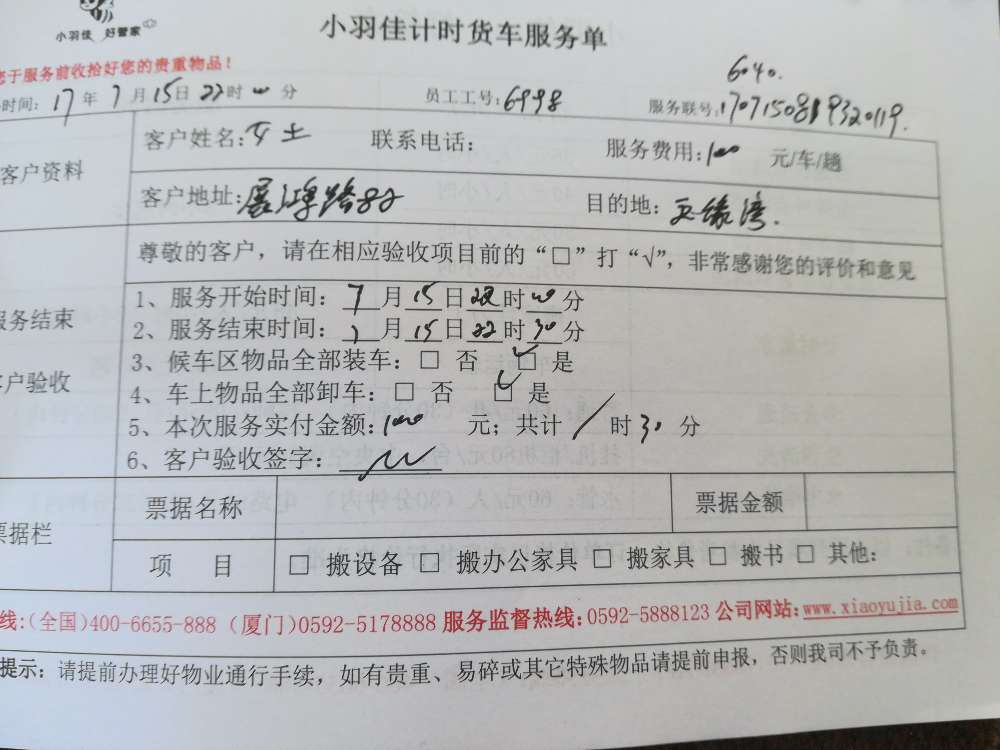 小羽佳 好管家
小羽佳计时货车服务单
您于服务前收拾好您的贵重物品！
6040.
时间: 17年7月15日22时00分 员工工号:6998 服务联号:
客户资料
客户姓名:女士 联系电话: 服务费用:100 元/车/趟
客户地址:展鸿路82 目的地:
尊敬的客户，请在相应验收项目前的“□”打“√”，非常感谢您的评价和意见
服务结束
客户验收
1、服务开始时间: 7月15日22时00分
2、服务结束时间: 7月15日22时30分
3、候车区物品全部装车: □ 否 ☑ 是
4、车上物品全部卸车: □ 否 ☑ 是
5、本次服务实付金额:100 元；共计 / 时30分
6、客户验收签字:
票据栏
票据名称 票据金额
项 目 □ 搬设备 □ 搬办公家具 □ 搬家具 □ 搬书 □ 其他:
线:(全国)400-6655-888 (厦门)0592-5178888 服务监督热线:0592-5888123 公司网站:www.xiaoyujia.com
提示: 请提前办理好物业通行手续，如有贵重、易碎或其它特殊物品请提前申报，否则我司不予负责。